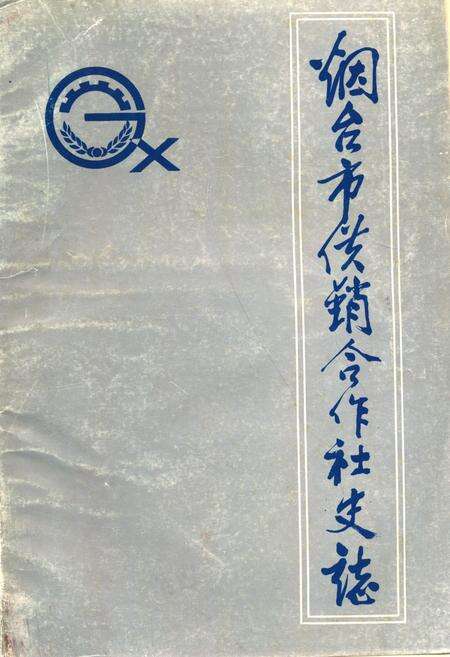 烟台市供销合作社史誌
GX